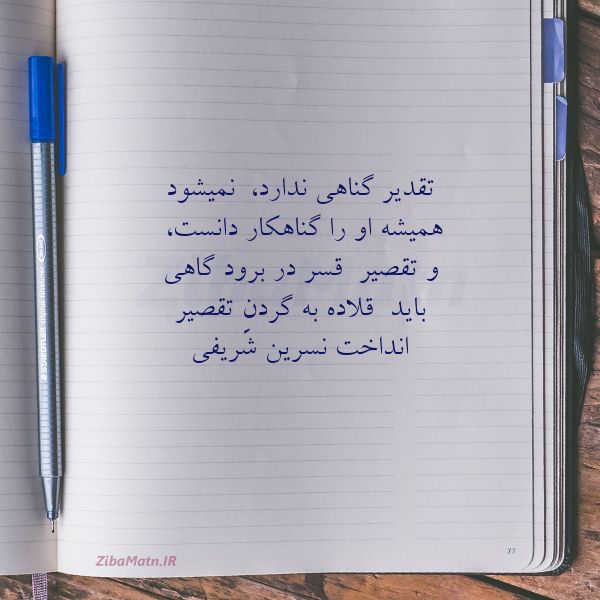 تقدیر گناهی ندارد، نمیشود
همیشه او را گناهکار دانست،
و تقصیر قسر در برود گاهی
باید قلاده به گردنِ تقصیر
انداخت نسرین شریفی
ZibaMatn.IR
77